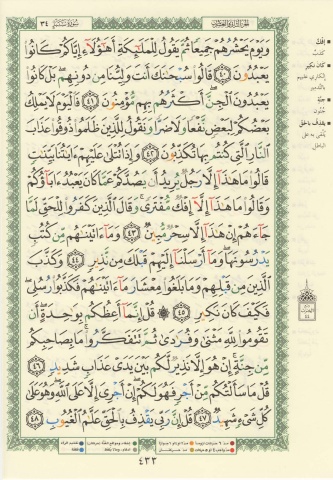 سُورَةُ سَبَإٍ ٣٤
وَيَوْمَ يَحْشُرُهُمْ جَمِيعًا ثُمَّ يَقُولُ لِلْمَلَٰٓئِكَةِ أَهَٰٓؤُلَآءِ إِيَّاكُمْ كَانُوا۟
يَعْبُدُونَ ٤٠ قَالُوا۟ سُبْحَٰنَكَ أَنتَ وَلِيُّنَا مِن دُونِهِم ۖ بَلْ كَانُوا۟
يَعْبُدُونَ ٱلْجِنَّ ۖ أَكْثَرُهُم بِهِم مُّؤْمِنُونَ ٤١ فَٱلْيَوْمَ لَا يَمْلِكُ
بَعْضُكُمْ لِبَعْضٍ نَّفْعًا وَلَا ضَرًّا وَنَقُولُ لِلَّذِينَ ظَلَمُوا۟ ذُوقُوا۟ عَذَابَ
ٱلنَّارِ ٱلَّتِى كُنتُم بِهَا تُكَذِّبُونَ ٤٢ وَإِذَا تُتْلَىٰ عَلَيْهِمْ ءَايَٰتُنَا بَيِّنَٰتٍ
قَالُوا۟ مَا هَٰذَآ إِلَّا رَجُلٌ يُرِيدُ أَن يَصُدَّكُمْ عَمَّا كَانَ يَعْبُدُ ءَابَآؤُكُمْ
وَقَالُوا۟ مَا هَٰذَآ إِلَّآ إِفْكٌ مُّفْتَرًى ۚ وَقَالَ ٱلَّذِينَ كَفَرُوا۟ لِلْحَقِّ لَمَّا
جَآءَهُمْ إِنْ هَٰذَآ إِلَّا سِحْرٌ مُّبِينٌ ٤٣ وَمَآ ءَاتَيْنَٰهُم مِّن كُتُبٍ
يَدْرُسُونَهَا ۖ وَمَآ أَرْسَلْنَآ إِلَيْهِمْ قَبْلَكَ مِن نَّذِيرٍ ٤٤ وَكَذَّبَ
ٱلَّذِينَ مِن قَبْلِهِمْ وَمَا بَلَغُوا۟ مِعْشَارَ مَآ ءَاتَيْنَٰهُمْ فَكَذَّبُوا۟ رُسُلِى ۖ
فَكَيْفَ كَانَ نَكِيرِ ٤٥ ۞ قُلْ إِنَّمَآ أَعِظُكُم بِوَٰحِدَةٍ ۖ أَن
تَقُومُوا۟ لِلَّهِ مَثْنَىٰ وَفُرَٰدَىٰ ثُمَّ تَتَفَكَّرُوا۟ ۚ مَا بِصَاحِبِكُم
مِّن جِنَّةٍ ۚ إِنْ هُوَ إِلَّا نَذِيرٌ لَّكُم بَيْنَ يَدَىْ عَذَابٍ شَدِيدٍ ٤٦
قُلْ مَا سَأَلْتُكُم مِّنْ أَجْرٍ فَهُوَ لَكُمْ ۖ إِنْ أَجْرِىَ إِلَّا عَلَى ٱللَّهِ ۖ وَهُوَ عَلَىٰ
كُلِّ شَىْءٍ شَهِيدٌ ٤٧ قُلْ إِنَّ رَبِّى يَقْذِفُ بِٱلْحَقِّ عَلَّٰمُ ٱلْغُيُوبِ ٤٨
٤٣٢